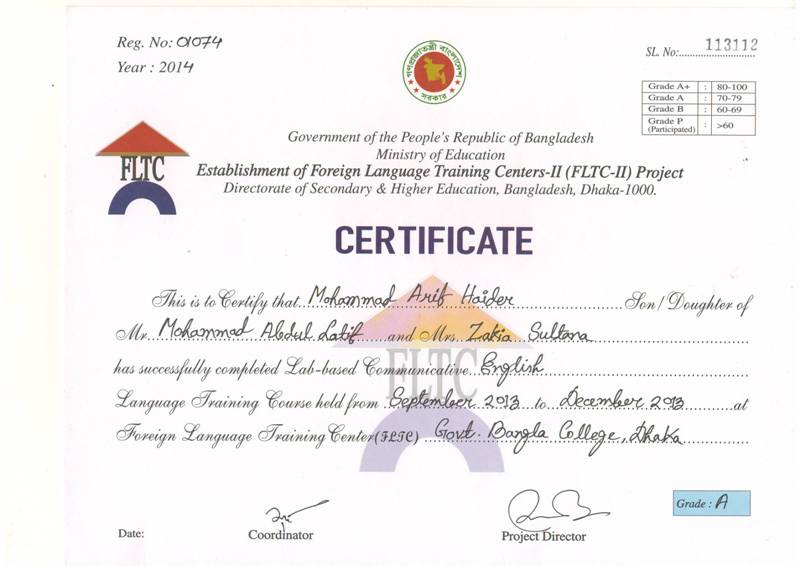 Reg. No: 01074
Year : 2014
গণপ্রজাতন্ত্রী বাংলাদেশ
সরকার
SL. No: 113112
Grade A+ : 80-100
Grade A : 70-79
Grade B : 60-69
Grade P (Participated) : >60
FLTC
Government of the People's Republic of Bangladesh
Ministry of Education
Establishment of Foreign Language Training Centers-II (FLTC-II) Project
Directorate of Secondary & Higher Education, Bangladesh, Dhaka-1000.
CERTIFICATE
This is to Certify that Mohammad Arif Haider Son/Doughter of
Mr. Mohammad Abdul Latif and Mrs. Zakia Sultana
has successfully completed Lab-based Communicative English
Language Training Course held from September 2013 to December 2013 at
Foreign Language Training Center (FLTC) Govt. Bangla College, Dhaka
FLTC
Grade : A
Date:
Coordinator
Project Director